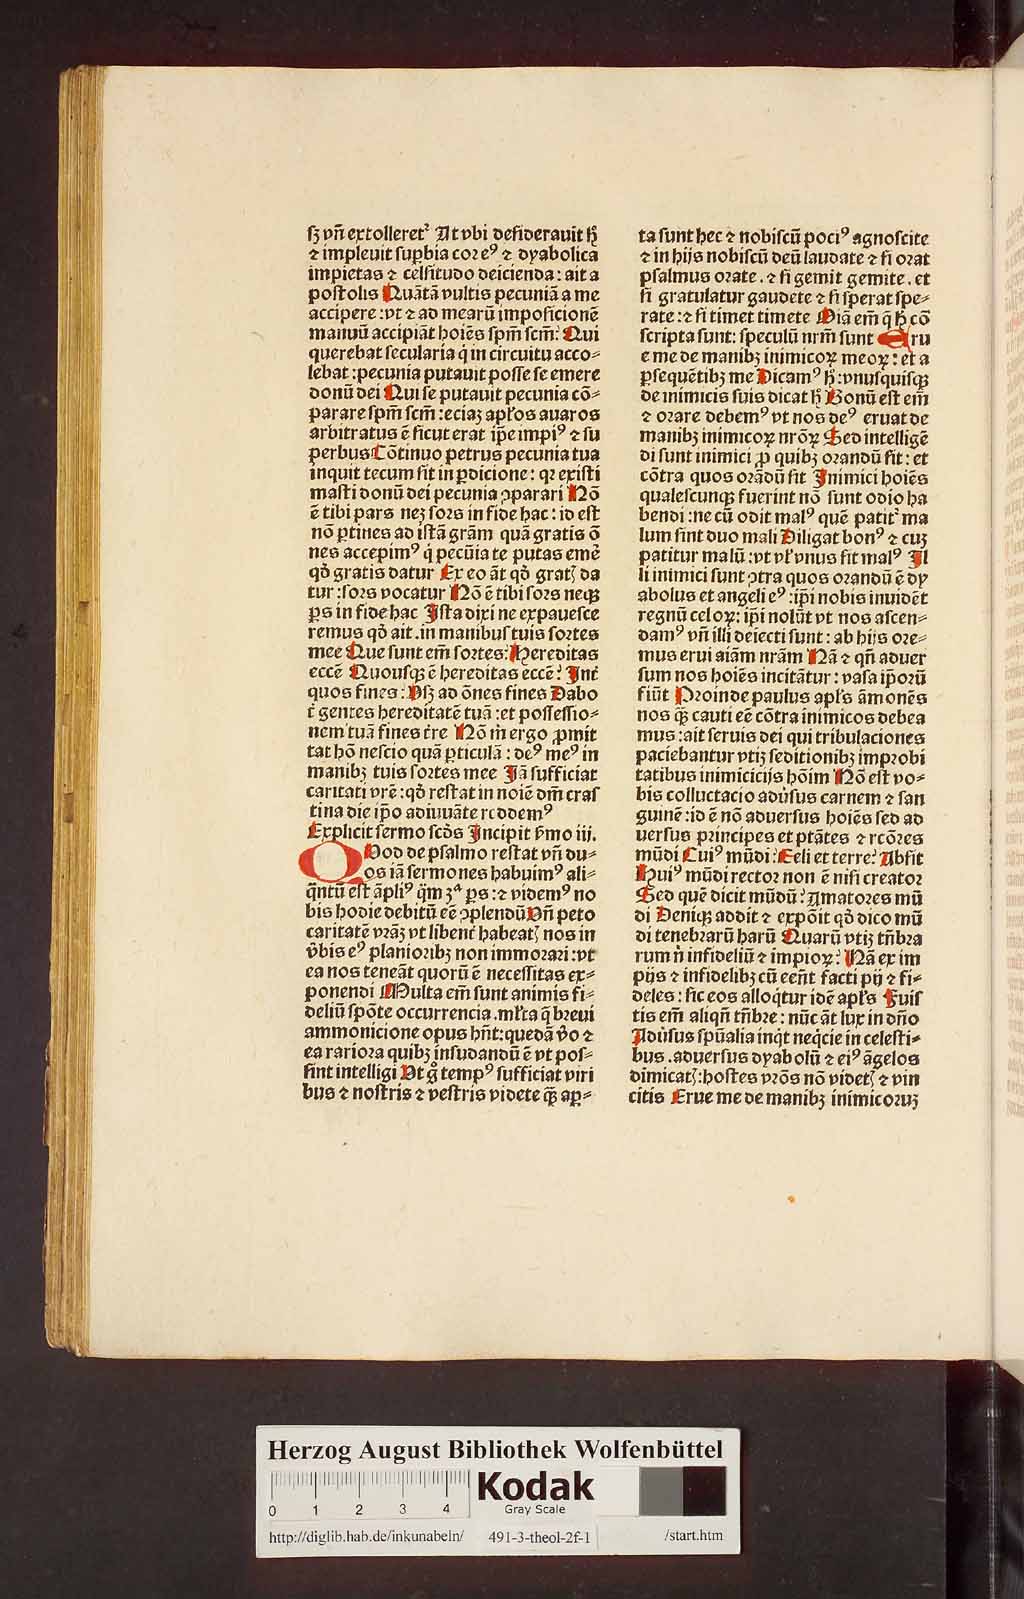 sꝫ vn̄ extolleretᷣ At vbi desiderauit hͦ
⁊ impleuit suꝑbia coreꝰ ⁊ dyabolica
impietas ⁊ celsitudo deicienda : ait a
postolis Quātā vultis pecuniā a me
accipere : vt ⁊ ad mearū imposicionē
manuū accipiāt hoīes spm̄ scm̄ : Qui
querebat secularia q̇ in circuitu acco⸗
lebat : pecunia putauit posse se emere
donū dei Qui se putauit pecunia cō⸗
parare spm̄ scm̄ : eciaꝫ apłos auaros
arbitratus ē sicut erat ip̄e impiꝰ ⁊ su
perbus Cōtinuo petrus pecunia tua
inquit tecum sit in ꝑdicione : qꝛ existi
masti donū dei pecunia ꝯparari Nō
ē tibi pars neꝫ sors in fide hac : id est
nō ꝑtines ad istā grām quā gratis ō
nes accepimꝰ q̇ pecūia te putas emē
qđ gratis datur Ex eo āt qđ gratꝭ da
tur : sors vocatur Nō ē tibi sors neqꝫ
ꝑs in fide hac Ista dixi ne expauesce
remus qđ ait . in manibus tuis sortes
mee Que sunt em̄ sortes : Hereditas
eccē Quousqꝫ ē hereditas eccē : Int̄
quos fines : Vsꝫ ad ōnes fines Dabo
t̄ gentes hereditatē tuā : et possessio⸗
nem tuā fines t̄re Nō m̄ ergo ꝓmit
tat hō nescio quā ꝑticulā : deꝰ meꝰ in
manibꝫ tuis sortes mee Jā sufficiat
caritati vr̄e : qđ restat in noīe dm̄ cras
tina die ip̄o adiuuāte rēddemꝰ
Explicit sermo scđs Incipit ẜmo iij.
Quod de psalmo restat vn̄ du⸗
os iā sermones habuimꝰ ali⸗
q̄ntū est āpliꝰ q̄m ꝫᵃ ꝑs : ⁊ videmꝰ no
bis hodie debitū eē ꝯplendū Vn̄ peto
caritatē vrāꝫ vt libent̄ habeatꝭ nos in
v̄bis eꝰ planioribꝫ non immorari : vt
ea nos teneāt quorū ē necessitas ex⸗
ponendi Multa em̄ sunt animis fi⸗
deliū spōte occurrencia . młta q̄ breui
ammonicione opus hn̄t : quedā v̄o ⁊
ea rariora quibꝫ insudandū ē vt pos⸗
sint intelligi Vt g̊ tempꝰ sufficiat viri
bus ⁊ nostris ⁊ vestris videte qꝫ̄ aꝑ⸗
ta sunt hec ⁊ nobiscū pociꝰ agnoscite
⁊ in hijs nobiscū deū laudate ⁊ si orat
psalmus orate . ⁊ si gemit gemite . et
si gratulatur gaudete ⁊ si sperat spe⸗
rate : ⁊ si timet timete Oīa em̄ q̄ hͦ cō
scripta sunt : speculū nrm̄ sunt Eru
e me de manibꝫ inimicoꝝ meoꝝ : et a
ꝑsequētibꝫ me Dicamꝰ hͦ : vnusquisqꝫ
de inimicis suis dicat hͦ Bonū est em̄
⁊ orare debemꝰ vt nos deꝰ eruat de
manibꝫ inimicoꝝ nrōꝝ Sed intelligē
di sunt inimici ꝓ quibꝫ orandū sit : et
cōtra quos orādū sit Inimici hoīes
qualescunqꝫ fuerint nō sunt odio ha
bendi : ne cū odit malꝰ quē patitᷣ ma
lum sint duo mali Diligat bonꝰ ⁊ cuꝫ
patitur malū : vt vł vnus sit malꝰ Il
li inimici sunt ꝯtra quos orandū ē dy
abolus et angeli eꝰ : ip̄i nobis inuidēt
regnū celoꝝ : ip̄i nolūt vt nos ascen⸗
damꝰ vn̄ illi deiecti sunt : ab hijs ore⸗
mus erui aīam nrām Nā ⁊ qn̄ aduer
sum nos hoīes incitātur : vasa ip̄orū
fiūt Proinde paulus apłs āmonēs
nos qꝫ̄ cauti eē cōtra inimicos debea
mus : ait seruis dei qui tribulaciones
paciebantur vtiꝫ sedicionibꝫ improbi
tatibus inimicicijs hoīm Nō est vo⸗
bis colluctacio adūsus carnem ⁊ san
guinē : id ē nō aduersus hoīes sed ad
uersus principes et ptātes ⁊ rcōres
mūdi Cuiꝰ mūdi : Celi et terre : Absit
Huiꝰ mūdi rector non ē nisi creator
Sed quē dicit mūdū : Amatores mū
di Deniqꝫ addit ⁊ expōit qđ dico mū
di tenebrarū harū Quarū vtiꝫ tn̄bra
rum n̄ infideliū ⁊ impioꝝ : Nā ex im
pijs ⁊ infidelibꝫ cū eēn̄t facti pij ⁊ fi⸗
deles : sic eos alloq̇tur idē apłs Fuis
tis em̄ aliqn̄ tn̄bre : nūc āt lux in dn̄o
Adūsus spūalia inq̇t neq̇cie in celesti⸗
bus . aduersus dyabolū ⁊ eiꝰ āgelos
dimicatꝭ : hostes vrōs nō videtꝭ ⁊ vin
citis Erue me de manibꝫ inimicoruꝫ
Herzog August Bibliothek Wolfenbüttel
0 1 2 3 4
Kodak
Gray Scale
http://diglib.hab.de/inkunabeln/ 491-3-theol-2f-1 /start.htm